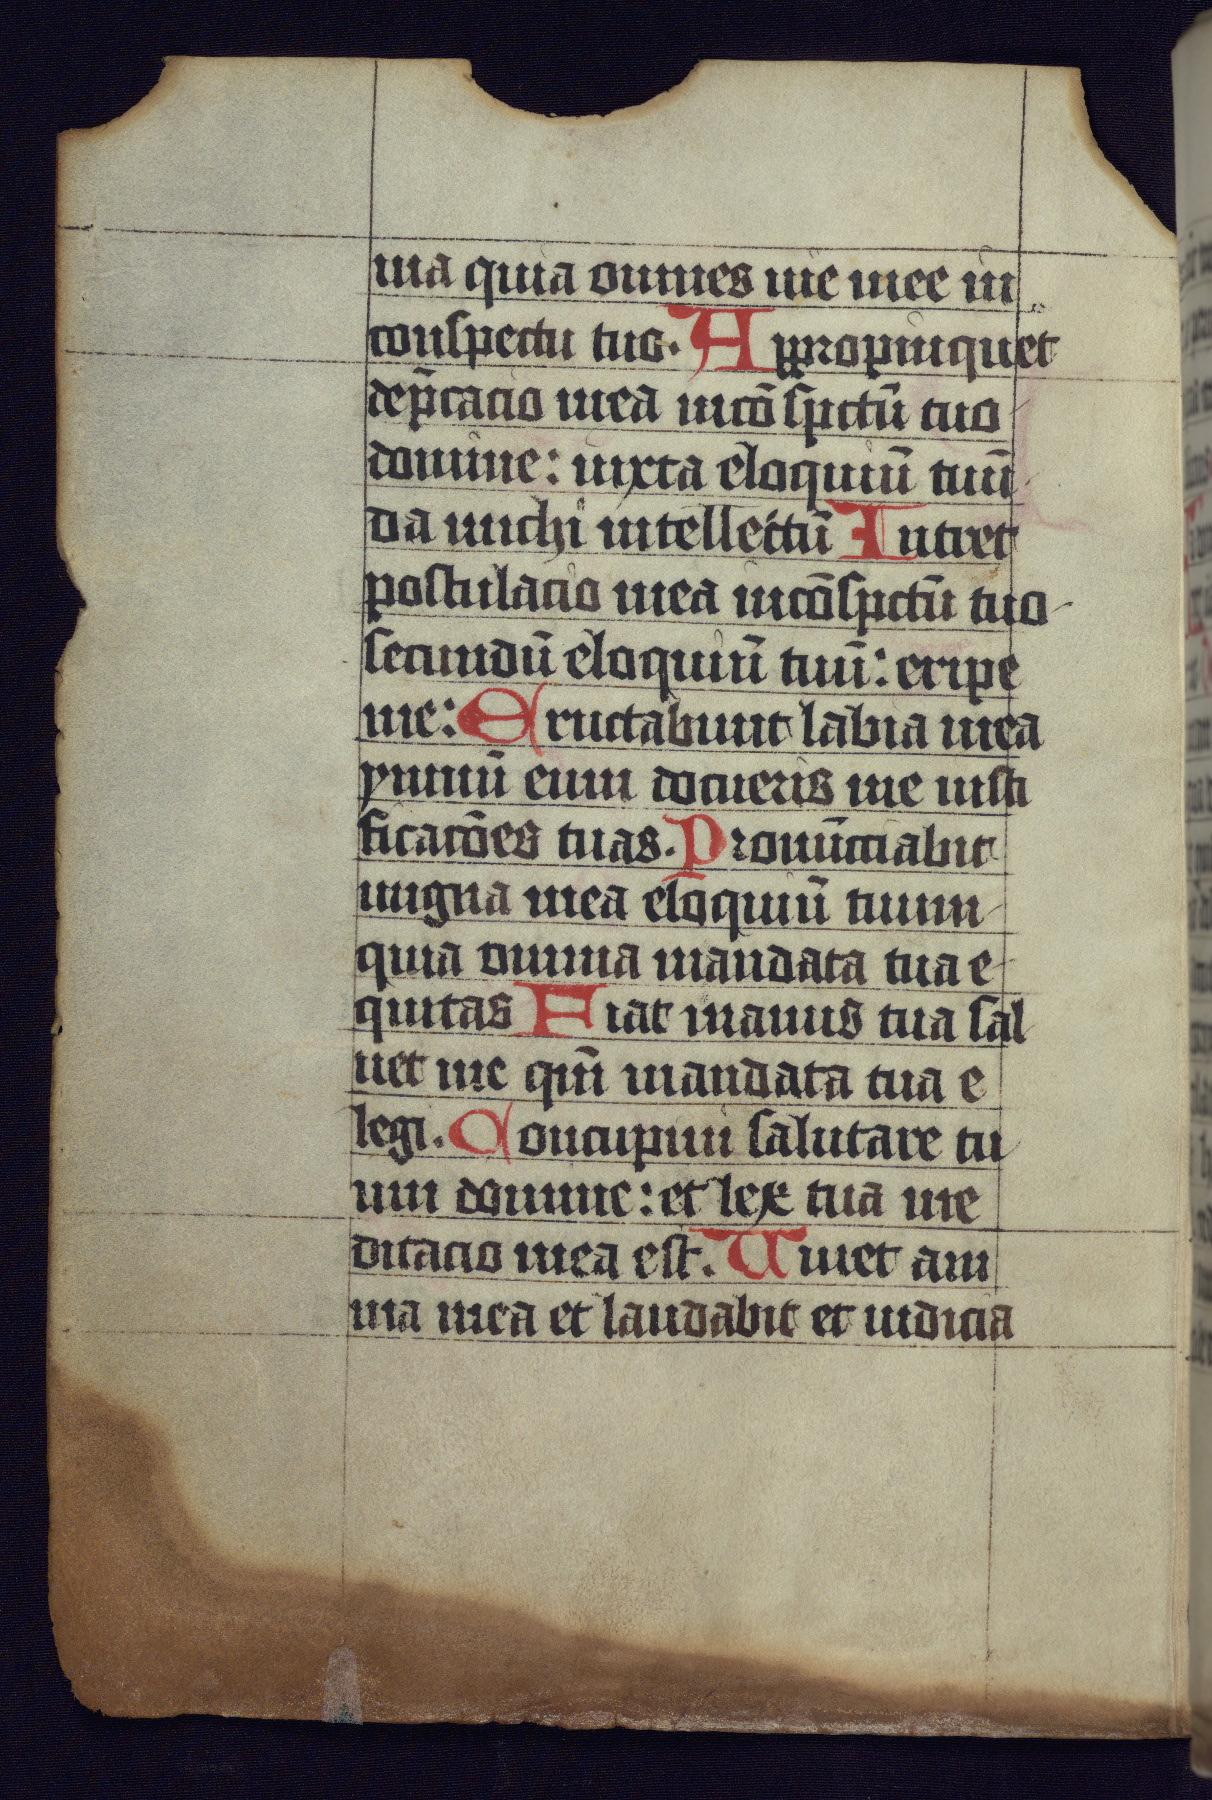 ma quia omnes uie mee in
conspectu tuo. Appropinquet
dep̄cacio mea incō spctū tuo
domine: iuxta eloquiū tuū
da michi intellectū Intret
postulacio mea incōspctū tuo
secundū eloquiū tuū: eripe
me: Eructabunt labia mea
ymnū cum docueris me iusti
ficacōes tuas. Pronūciabit
lingna mea eloquiū tuum
quia omnia mandata tua e
quitas Fiat manus tua sal
uet me qm̄ mandata tua e
legi. Concupiui salutare tu
um domine: et lex tua me
ditacio mea est. Uiuet ani
ma mea et laudabit et iudicia